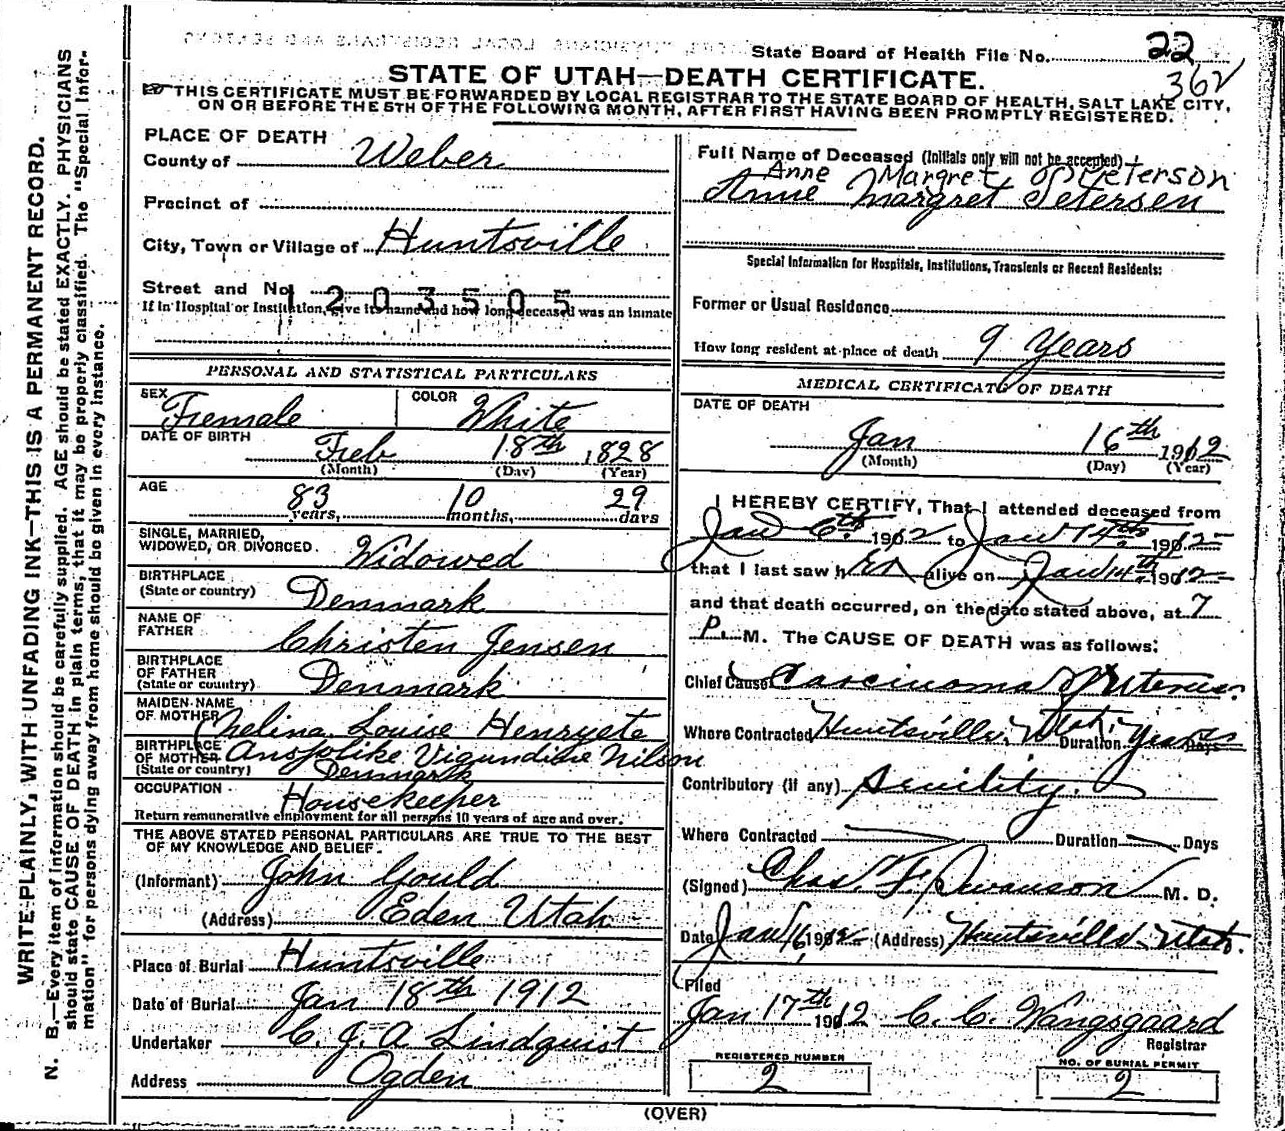 State Board of Health File No. 22
362
STATE OF UTAH—DEATH CERTIFICATE.
THIS CERTIFICATE MUST BE FORWARDED BY LOCAL REGISTRAR TO THE STATE BOARD OF HEALTH, SALT LAKE CITY,
ON OR BEFORE THE 5TH OF THE FOLLOWING MONTH, AFTER FIRST HAVING BEEN PROMPTLY REGISTERED.
WRITE PLAINLY, WITH UNFADING INK—THIS IS A PERMANENT RECORD.
N. B.—Every item of information should be carefully supplied. AGE should be stated EXACTLY. PHYSICIANS
should state CAUSE OF DEATH in plain terms, that it may be properly classified. The "Special Infor-
mation" for persons dying away from home should be given in every instance.
PLACE OF DEATH
County of Weber
Precinct of
City, Town or Village of Huntsville
Street and No.
1203505
If in Hospital or Institution, give its name and how long deceased was an inmate
PERSONAL AND STATISTICAL PARTICULARS
SEX Female COLOR White
DATE OF BIRTH Feb 18th 1828
(Month) (Day) (Year)
AGE 83 10 29
years, months, days
SINGLE, MARRIED,
WIDOWED, OR DIVORCED. Widowed
BIRTHPLACE
(State or country) Denmark
NAME OF
FATHER Christen Jensen
BIRTHPLACE
OF FATHER
(State or country) Denmark
MAIDEN NAME
OF MOTHER Louise Henryete
BIRTHPLACE
OF MOTHER Nilson
(State or country) Denmark
OCCUPATION Housekeeper
Return remunerative employment for all persons 10 years of age and over.
THE ABOVE STATED PERSONAL PARTICULARS ARE TRUE TO THE BEST
OF MY KNOWLEDGE AND BELIEF.
(Informant) John Gould
(Address) Eden Utah
Place of Burial Huntsville
Date of Burial Jan 18th 1912
Undertaker C. J. A Lindquist
Address Ogden
Full Name of Deceased (Initials only will not be accepted)
Anne Margret Peterson
Anne Margret Petersen
Special Information for Hospitals, Institutions, Transients or Recent Residents:
Former or Usual Residence
How long resident at place of death 9 Years
MEDICAL CERTIFICATE OF DEATH
DATE OF DEATH
Jan 16th 1912
(Month) (Day) (Year)
I HEREBY CERTIFY, That I attended deceased from
Jan 6th 1912 to Jan 14th 1912
that I last saw her alive on Jan 14th 1912
and that death occurred, on the date stated above, at 7
P. M. The CAUSE OF DEATH was as follows:
Chief Cause Carcinoma of Uterus.
Where Contracted Huntsville, Utah. Duration Years Days
Contributory (if any) Senility.
Where Contracted Duration Days
(Signed) Chas. F. Swanson M. D.
Date Jan 16 1912 (Address) Huntsville Utah.
Filed
Jan 17th 1912 C. C. Wangsgaard
Registrar
REGISTERED NUMBER
2
NO. OF BURIAL PERMIT
2
(OVER)